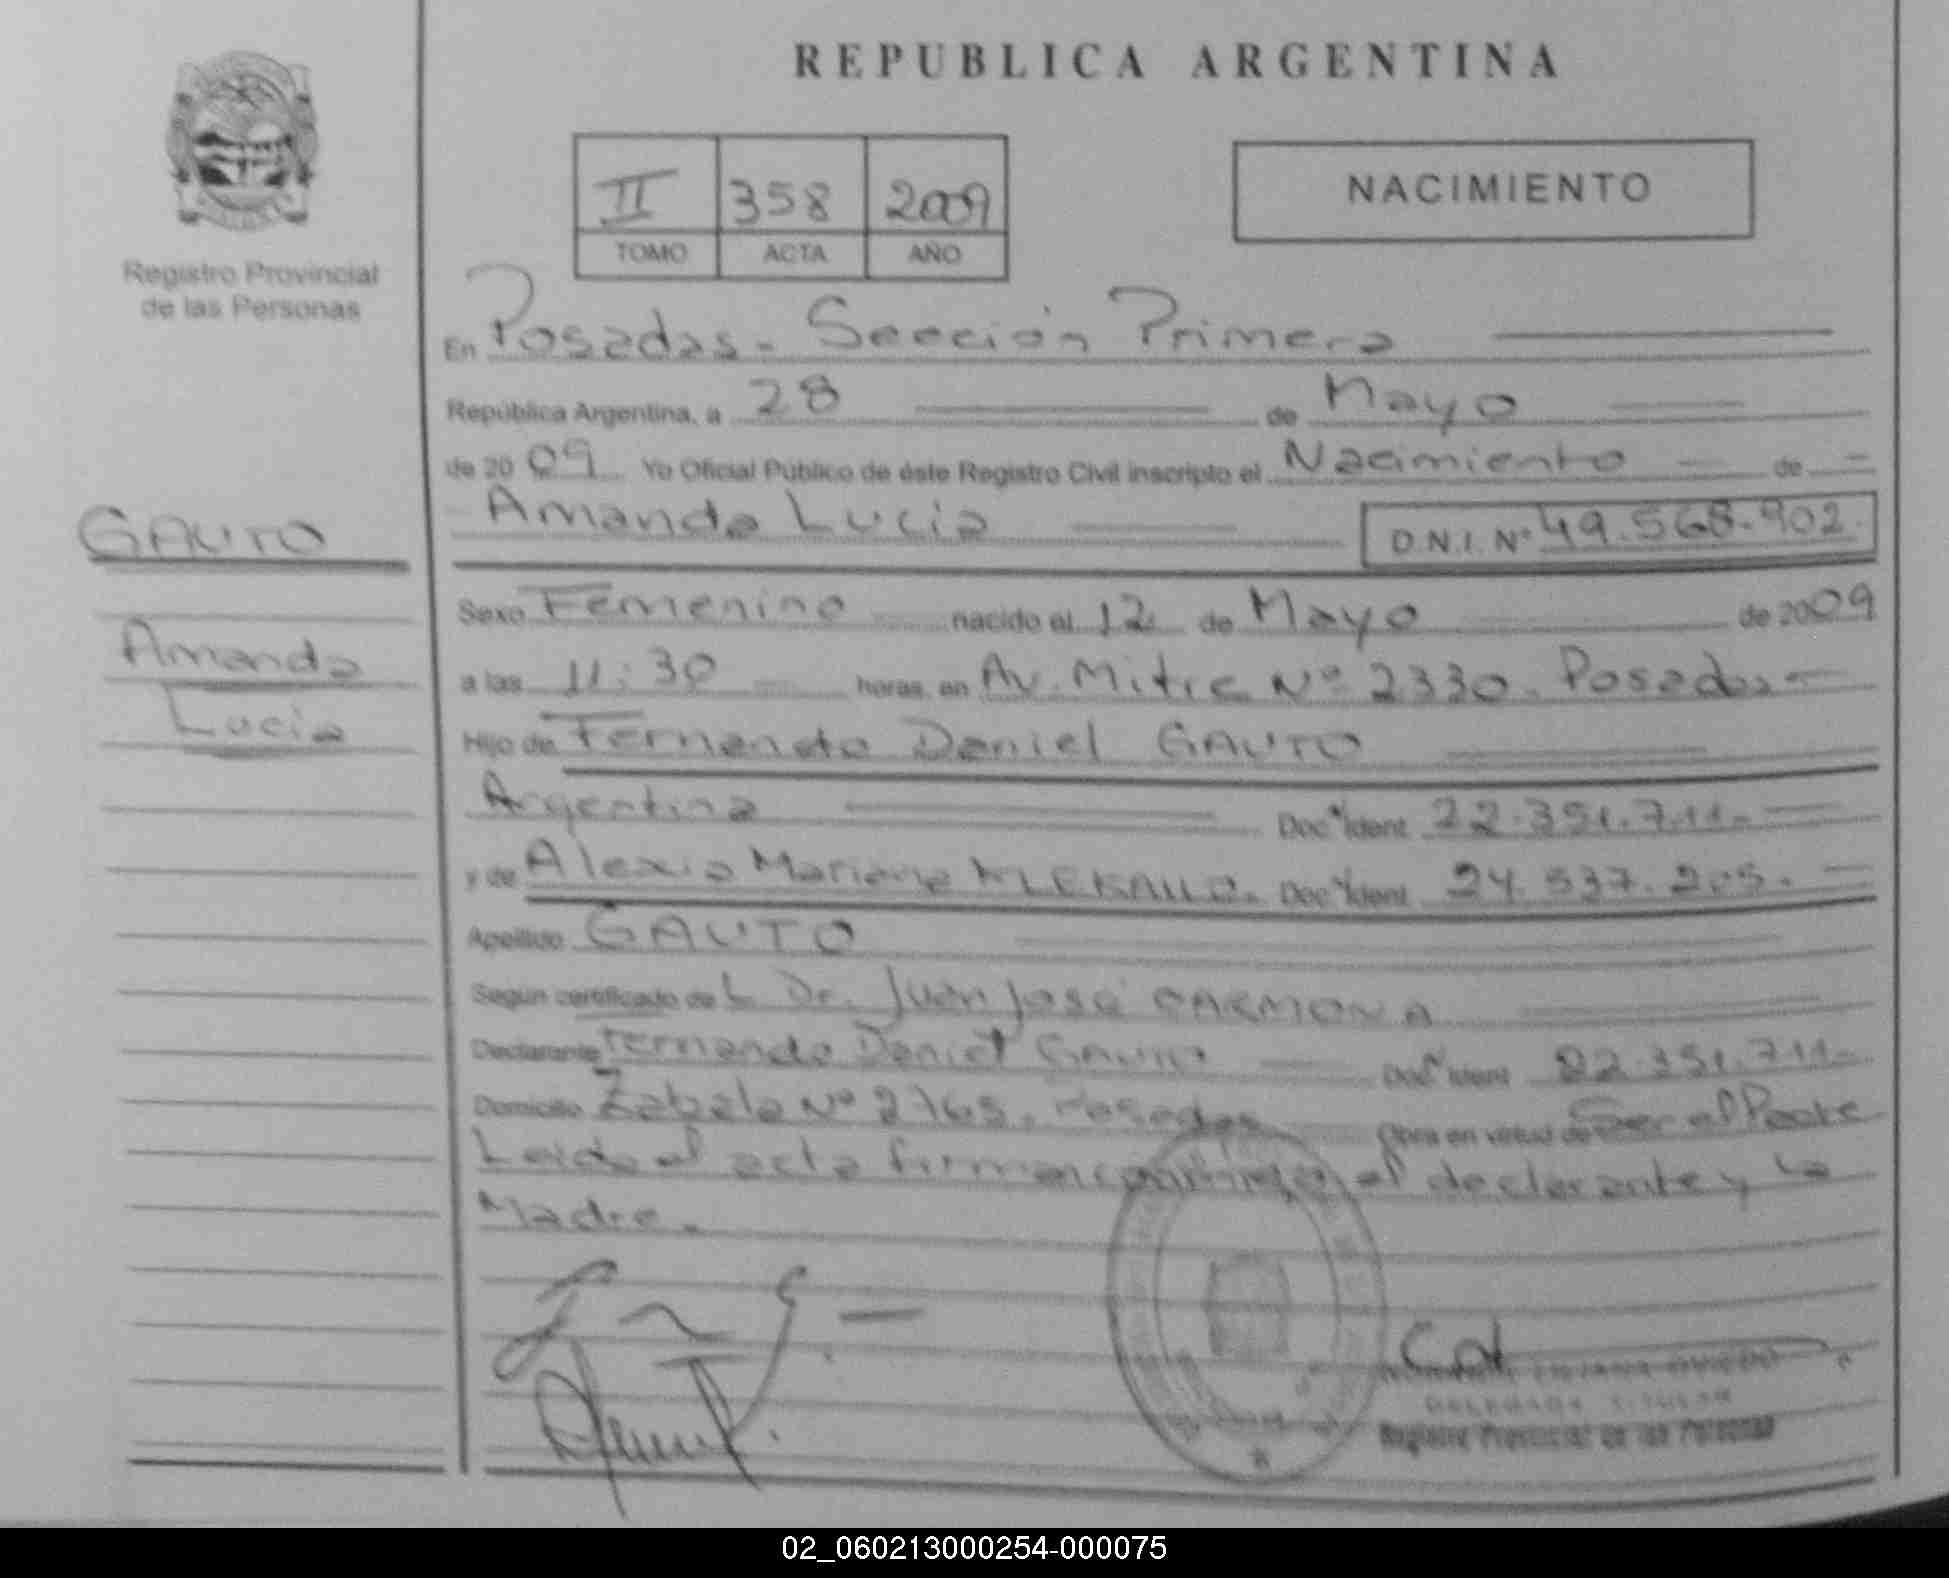 REPUBLICA ARGENTINA
II 358 2009
TOMO ACTA AÑO
NACIMIENTO
Registro Provincial
de las Personas
En Posadas - Sección Primera
República Argentina, a 28 de Mayo
de 2009 Yo Oficial Público de éste Registro Civil inscripto el Nacimiento de
Amanda Lucia D.N.I. Nº 49.568.902
GAUTO
Amanda
Lucia
Sexo Femenino nacido el 12 de Mayo de 2009
a las 11:30 horas, en Av. Mitre Nº 2330. Posadas
Hijo de Fernando Daniel GAUTO
Argentina Doc. Ident 22.351.711.
y de Alexia Mariana Doc. Ident 24.537.205.
Apellido GAUTO
Según certificado del Dr. Juan José CARMONA
Declarante Fernando Daniel Gauto Doc. Ident 22.351.711
Domicilio Zabala Nº 2765. Posadas Obra en virtud de Ser el Padre
Leida el acta firman conmigo el declarante y la
Madre.
Registro Provincial de las Personas
02_060213000254-000075